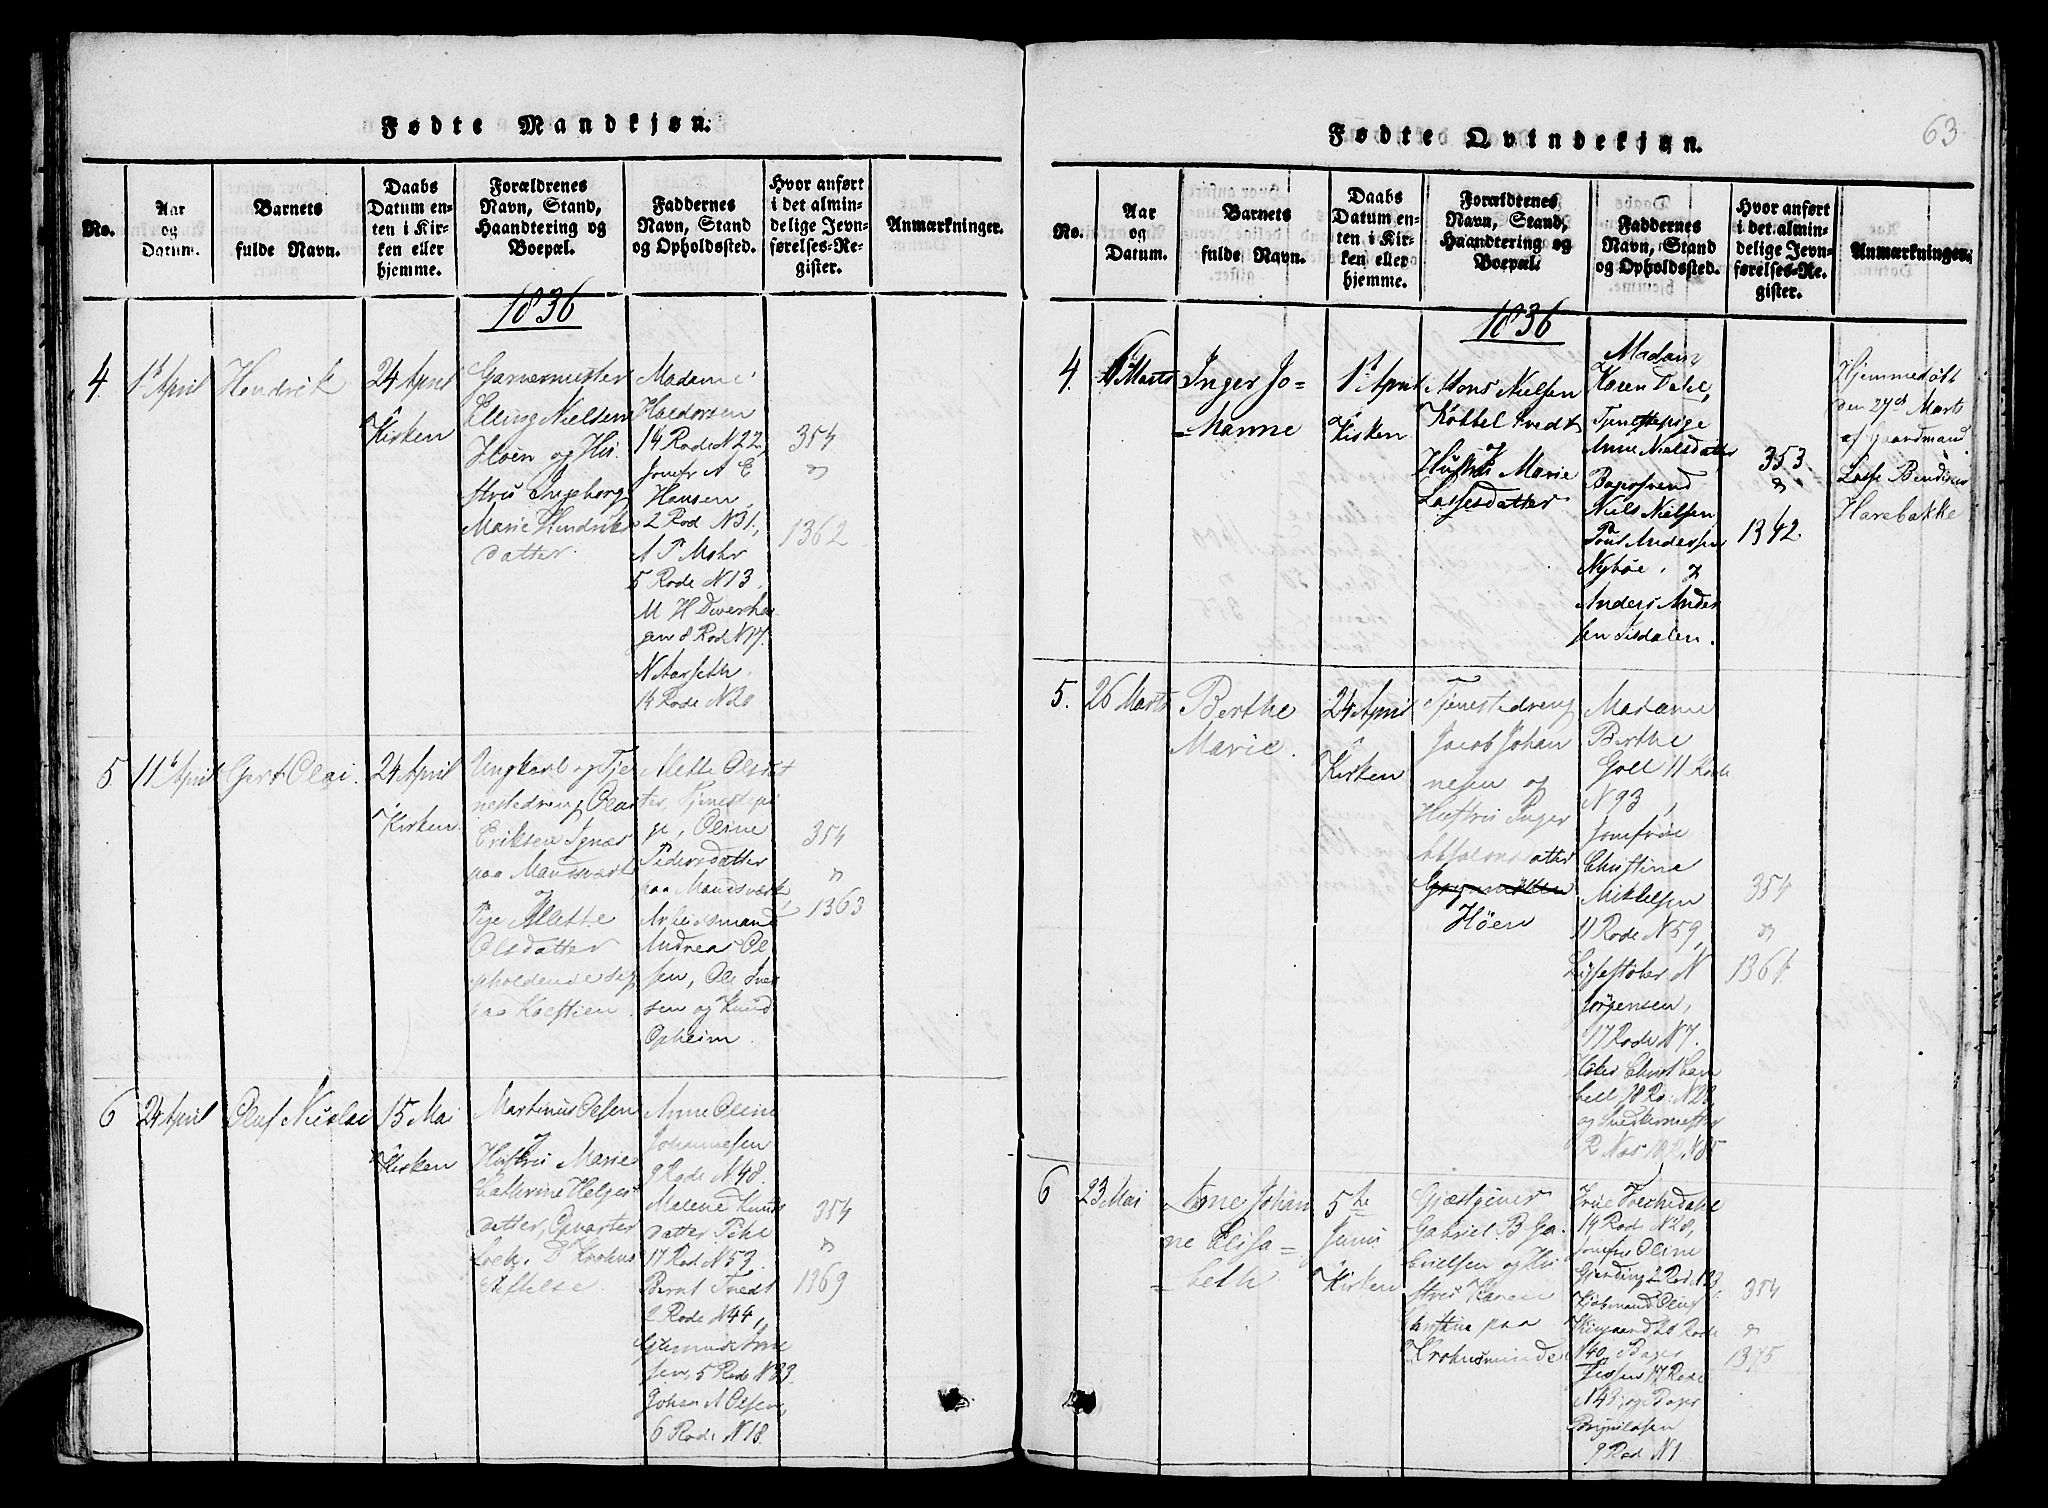 Fødte Mandkjøn.
No.
Aar
og
Datum.
Barnets
fulde Navn.
Daabs
Datum en-
ten i Kir-
ken eller
hjemme.
Forældrenes
Navn, Stand,
Haandtering og
Boepæl.
Faddernes
Navn, Stand
og Opholdssted.
Hvor anført
i det almin-
delige Jevn-
førelses-Re-
gister.
Anmærkninger.
1836
4.
1 April
Hendrik
24 April
Kirken
Garnermester
Elling Nielsen
Hoen og Hu-
stru Ingeborg
Marie Hendriks
datter.
Madame
Haldorsen
14 Rode N 22,
Jomfr A E
Hansen,
2 Rod N 31,
A P Mohr
5 Rode N 13.
M H Dverha
gen 8 Rode N 17.
N Aarseth
14 Rode N 20
354
1362
5
11 April
Gert Olai.
24 April
Kirken
Ungkarl og Tje
nestedreng Olai
Eriksen
paa Mandsværk
Pige Mette
Olsdatter
opholdende sig
paa
Mette Olsdat
ter, Tjenestepi
ge, Oline
Pedersdatter
paa Mandsværk
Arbeidsmand
Andrea Ol
sen, Ole Iver
sen og Knud
Opheim.
354
1363
6
24 April
Oluf Nicolai
15 Mai
Kirken
Martinus Olsen
Hustru Marie
Cathrine Helges
datter,
Anne Oline
Johannesen
9 Rode N 48.
Malene Knuds
datter
17 Rod N 53.
Bernt Tvedt
2 Rode N 44,
sen, 5 Rode N 33
Johan A Olsen,
6 Rode N 18.
354
1369
Fødte Qvindekjøn.
63
No.
Aar
og
Datum.
Barnets
fulde Navn.
Daabs
Datum en-
ten i Kir-
ken eller
hjemme.
Forældrenes
Navn, Stand,
Haandtering og
Boepæl.
Faddernes
Navn, Stand
og Opholdssted.
Hvor anført
i det almin-
delige Jevn-
førelses-Re-
gister.
Anmærkninger.
1836
4.
Marts
Inger Jo-
=hanne
1 April
Kirken
Mons Nielsen
Hustru Marie
Lassesdatter
Madam
Karen Dahl,
Tjenstepige
Anne Nielsdatter
Bagersvend
Niels Nielsen
Andersen
Nyböe. og
Anders Ander
sen Isdalen.
353.
1342.
Hjemmedöbt
den 27de Marts
af Gaardmand
Lasse Bendixen
Harebakke
5.
26 Marts
Berthe
Marie.
24 April
Kirken
Tjenestedreng
Jacob Johan
nesen og
Hustru Inger
Absalonsdatter
Höen
Madame
Berthe
Goll 11 Rode
N 93,
Jomfrue
Christine
Mikkelsen
11 Rode N 59,
Lysestöber N
Jörgensen,
17 Rode N 7.
354
1364.
6
23 Mai
Anne Johan
ne Elisa=
=beth
5te
Junii
Kirken
Gjæstgiver
Gabriel B Ga
brielsen og Hu
stru Karen
Christine paa
Krohusminde
14 Rod N 28,
Jomfru Oline
Kjöbmand Oluf
N 40, Bager
Jessen 17 Rode
N 43, og Bager
Brynildsen
9 Rod N 1
354
1375